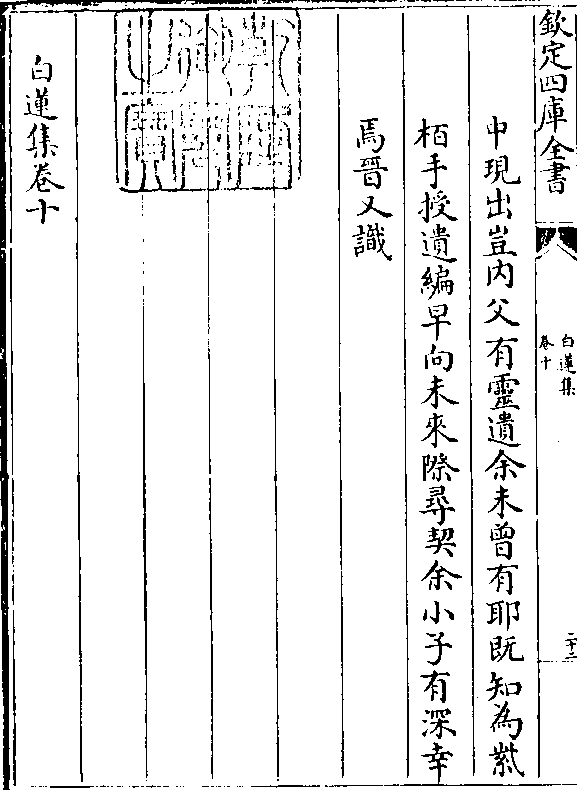 欽定四庫全書
白蓮集
卷十
二十二
中現出豈内父有靈遺余未曾有耶既知為紫
栢手授遺編早向未來際尋契余小子有深幸
焉晉又識
乾隆
御覽
之寶
白蓮集卷十